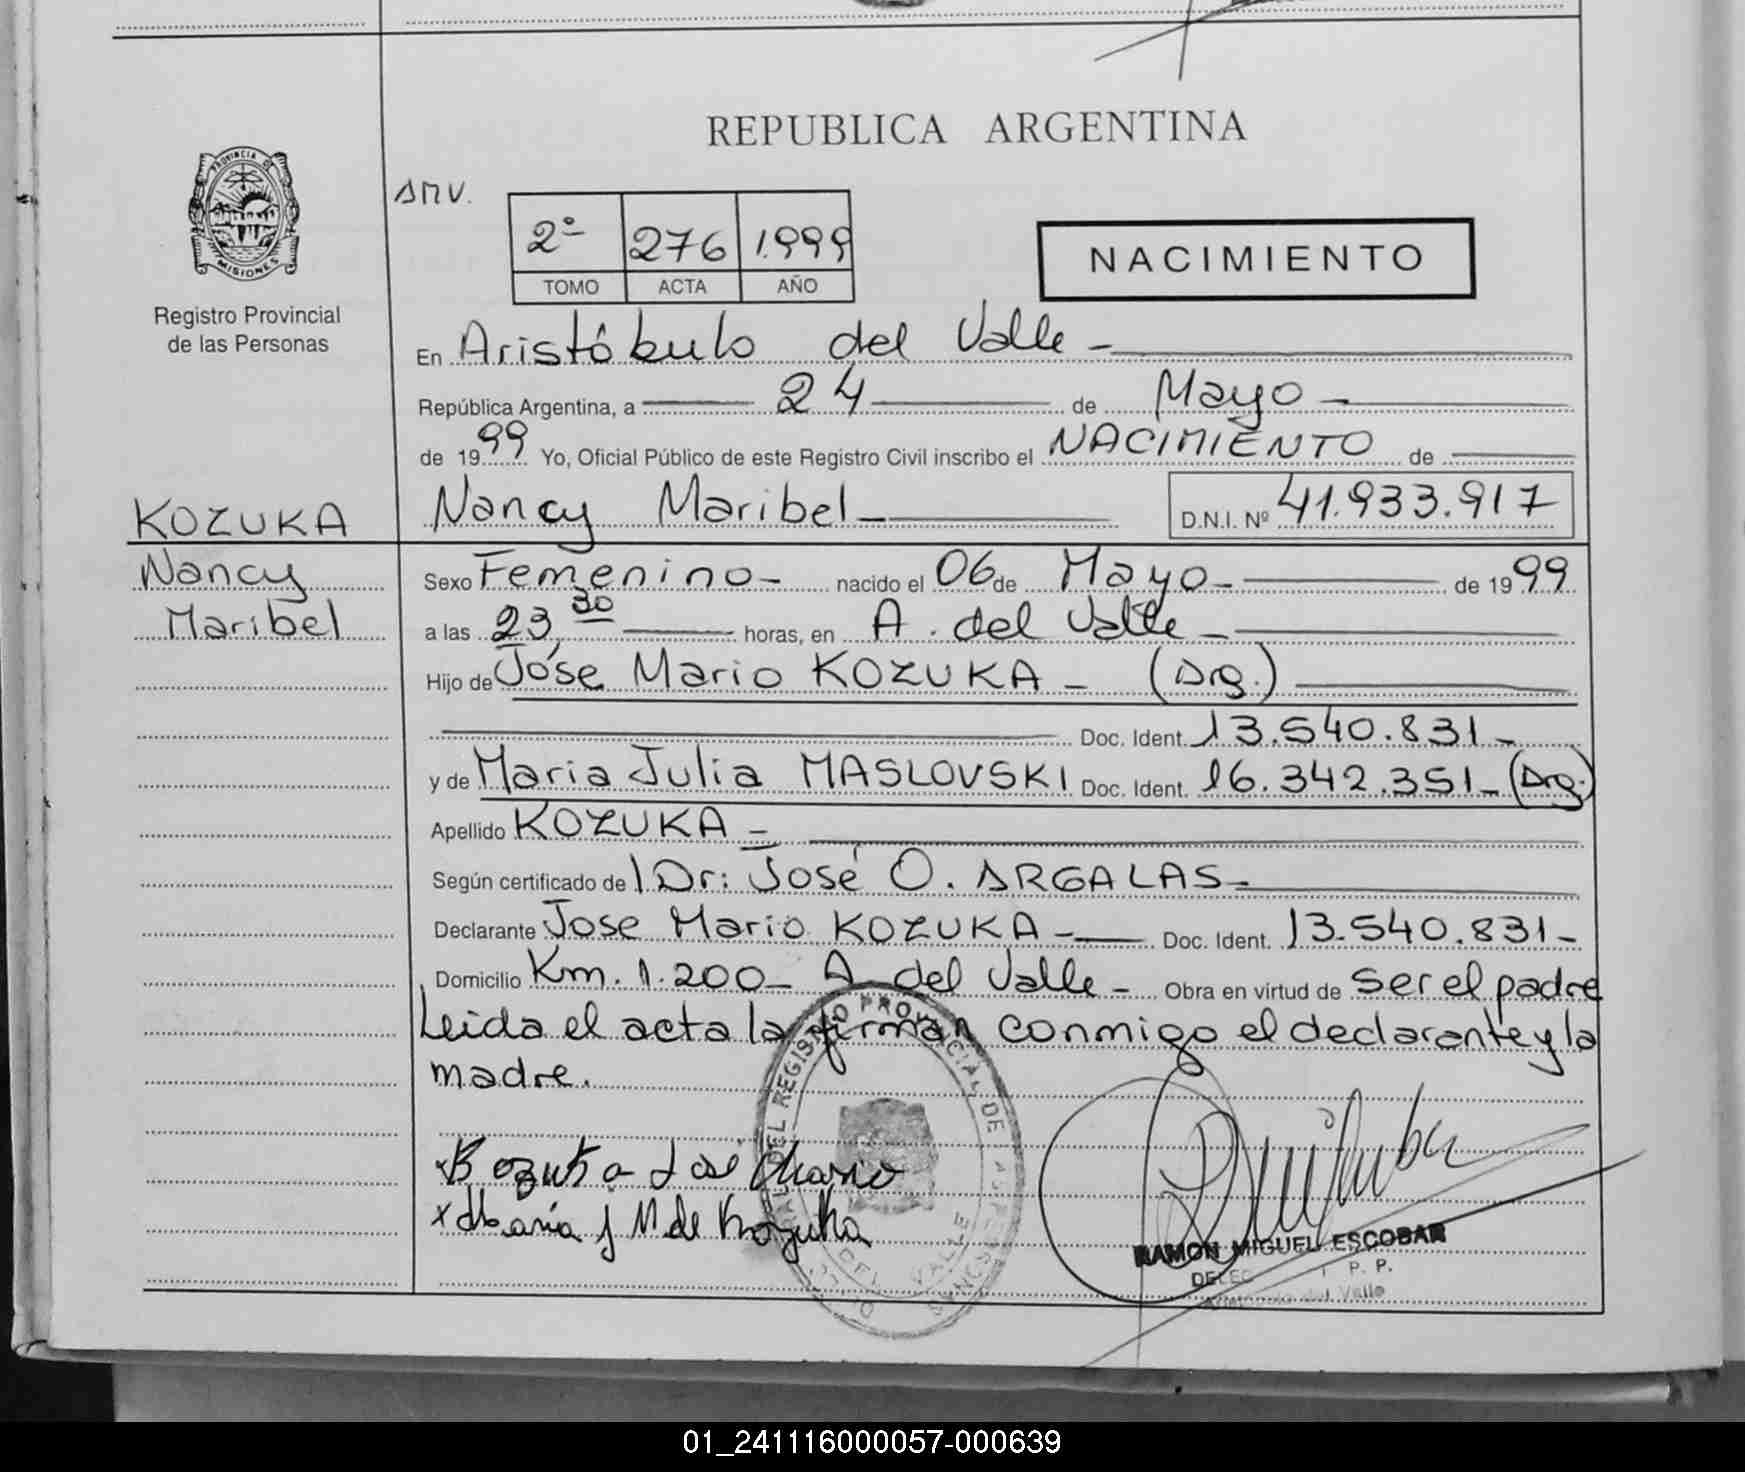 REPUBLICA ARGENTINA
PROVINCIA DE
MISIONES
Registro Provincial
de las Personas
2º 276 1.999
TOMO ACTA AÑO
NACIMIENTO
En Aristóbulo del Valle -
República Argentina, a 24 de Mayo -
de 1999 Yo, Oficial Público de este Registro Civil inscribo el NACIMIENTO de
KOZUKA Nancy Maribel - D.N.I. Nº 41.933.917
Nancy
Maribel
Sexo Femenino - nacido el 06 de Mayo - de 1999
a las 23,30 horas, en A. del Valle -
Hijo de José Mario KOZUKA - (Arg.)
Doc. Ident. 13.540.831 -
y de Maria Julia MASLOVSKI Doc. Ident. 16.342.351 - (Arg.)
Apellido KOZUKA -
Según certificado de Dr: José O. ARGALAS -
Declarante Jose Mario KOZUKA - Doc. Ident. 13.540.831 -
Domicilio Km. 1.200 - A del Valle - Obra en virtud de ser el padre
Leida el acta la firman conmigo el declarante y la
madre.
Kozuka José Mario
x Maria J M de Kozuka
RAMON MIGUEL ESCOBAR
Aristóbulo del Valle
01_241116000057-000639